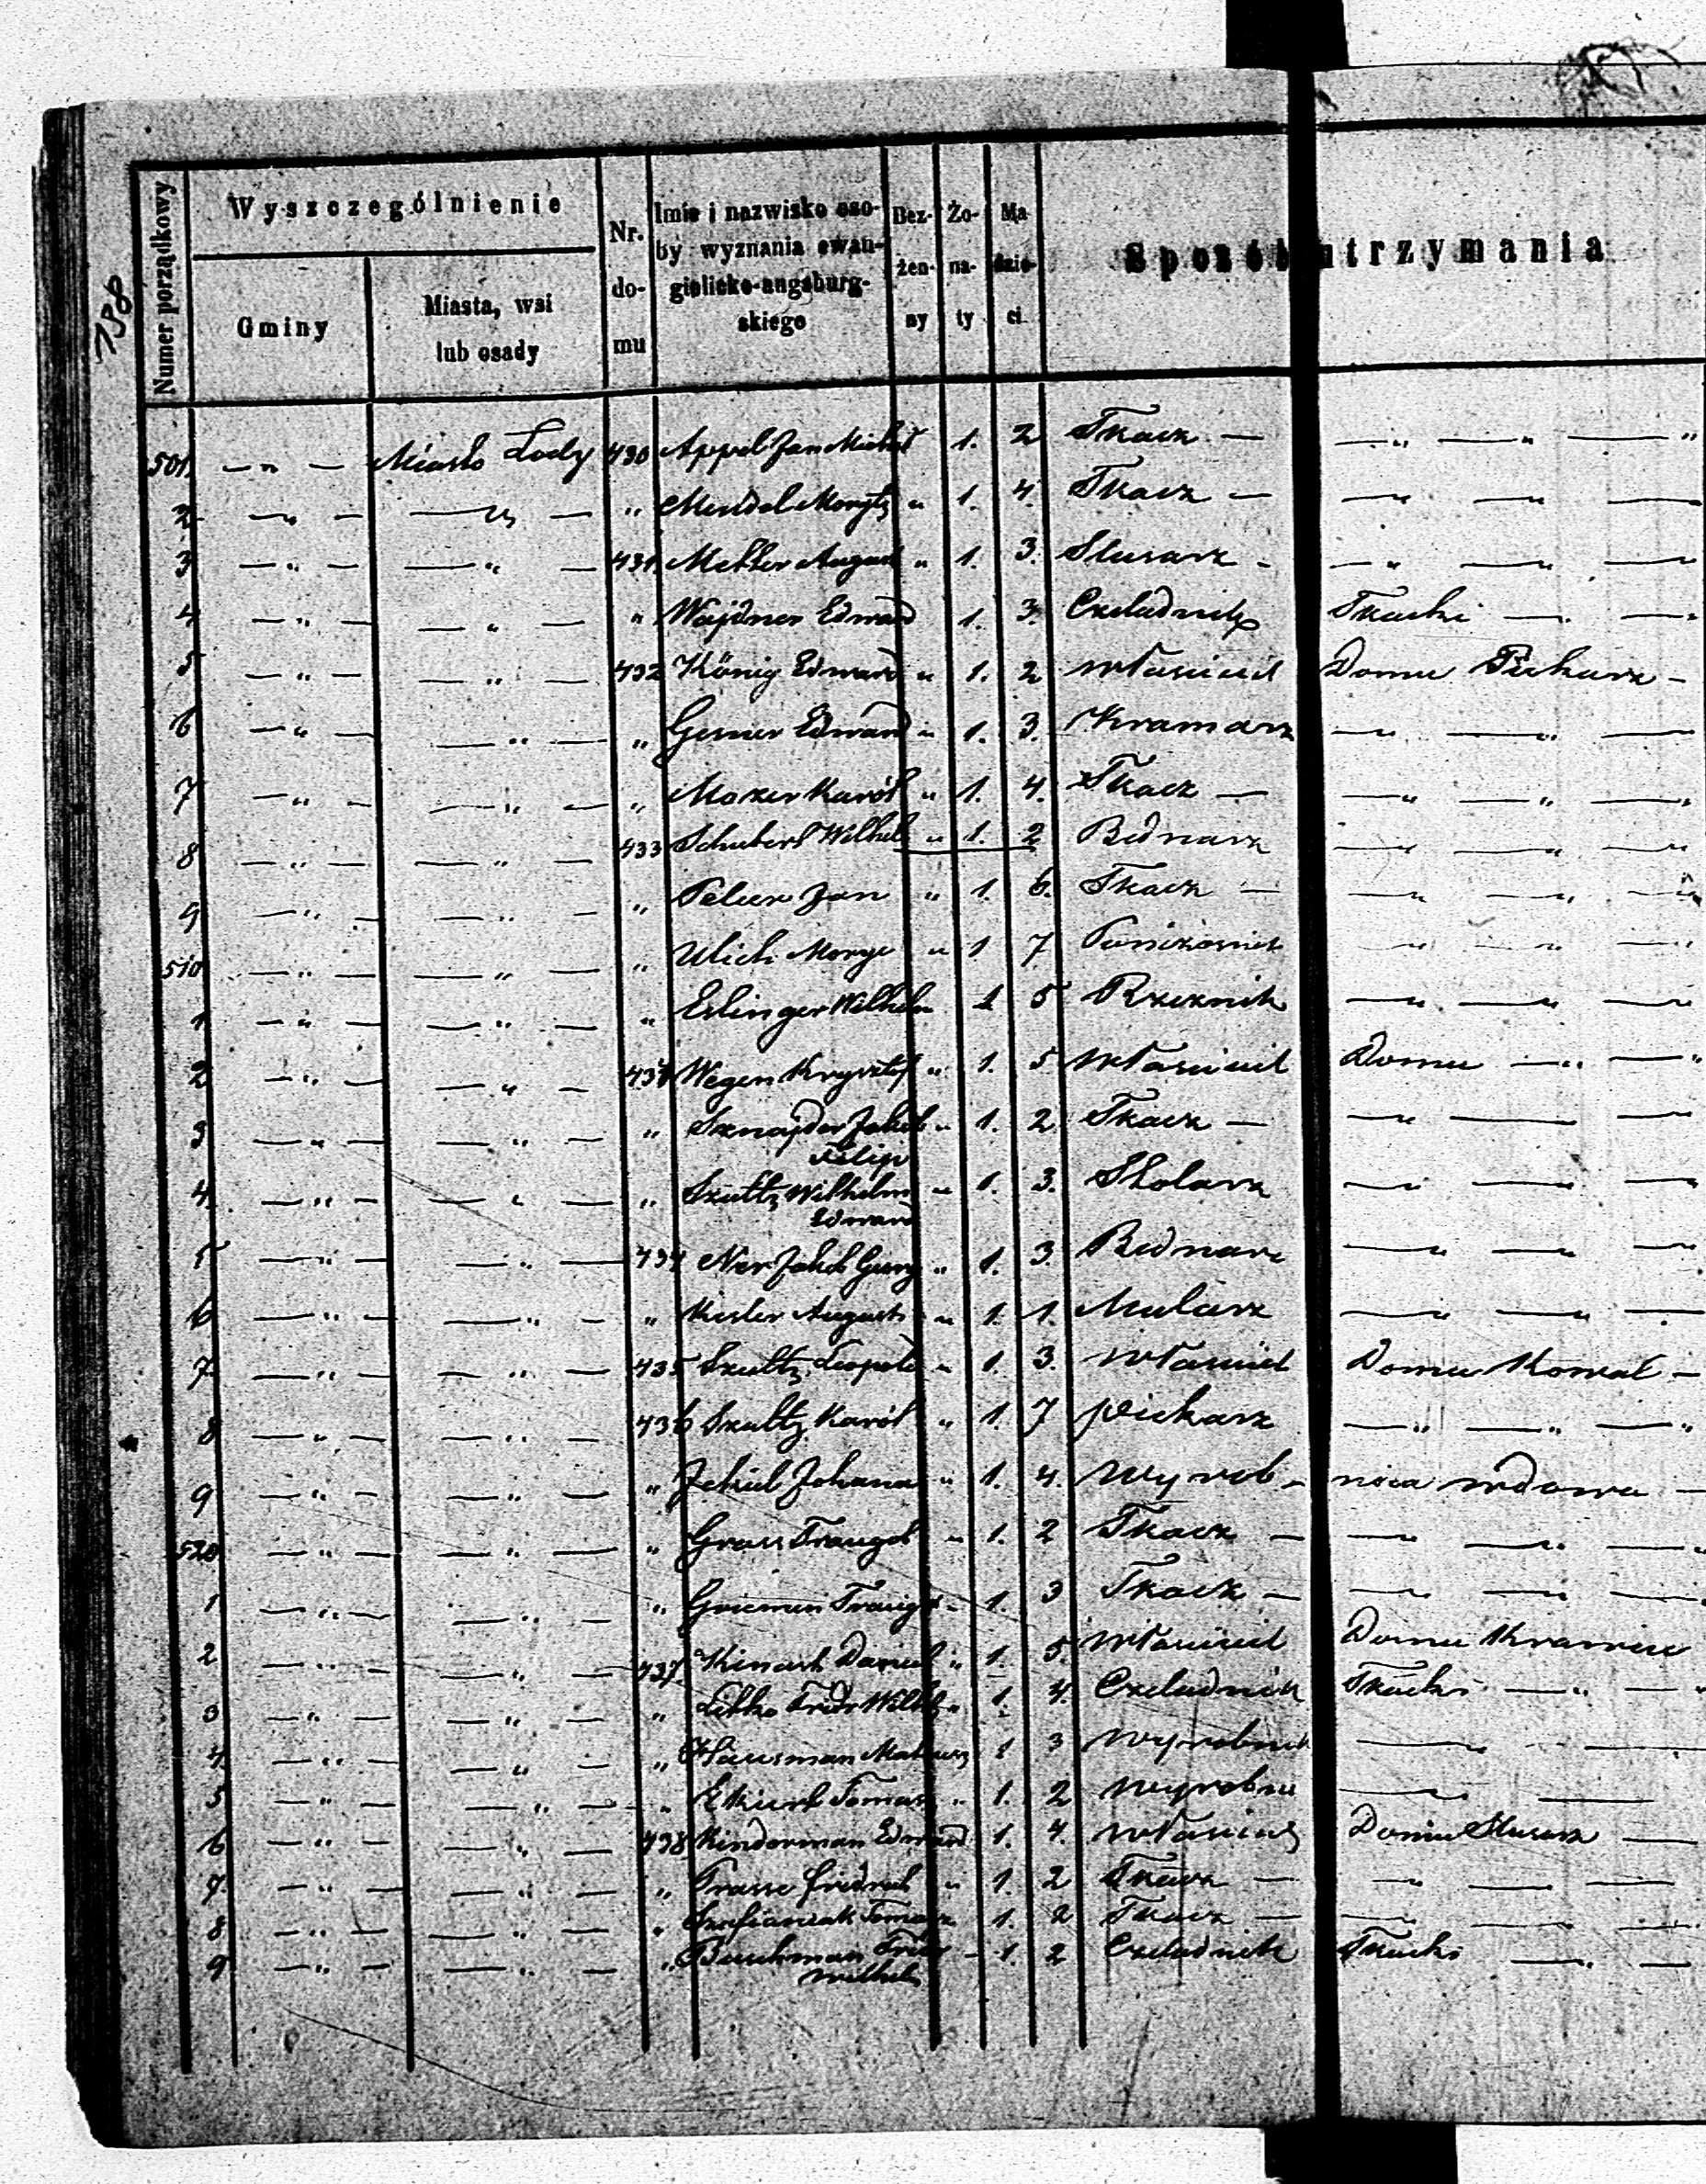 738
Numer porządkowy
Wyszczególnienie
Gminy
Miasta, wsi lub osady
Nr. do- mu
Imie i nazwisko oso- by wyznania ewan- gielicko-augsburg- skiego
Bez- żen- ny
Żo- na- ty
Ma dzie- ci
Sposób utrzymania
501 — „ — Miasto Łodzy 430 Appel Jan Michał 1. 2 Tkacz — — „ — „ — „
2 — „ — — „ — „ Mendel Morytz „ 1. 4. Tkacz — — „ — „ —
3 — „ — — „ — 431 August „ 1. 3. Slusarz - — „ — „ —
4 — „ — — „ — „ Wajdner Edward 1. 3. Czeladnik Tkacki — . —
5 — „ — — „ — 432 König Edward „ 1. 2 właściciel Domu Piekarz -
6 — „ — — „ — „ Gesner Edward „ 1. 3. Kramarz — „ — „ —
7 — „ — — „ — „ Mozer Karól „ 1. 4. Tkacz — — „ — „ —
8 — „ — — „ — 433 Schubert Wilhel „ 1. 2 Bednarz — „ — „ —
9 — „ — — „ — „ Jan „ 1. 6. Tkacz — — „ — „ —
510 — „ — — „ — „ Ulich Moryc „ 1 7 — „ — „ —
1 — „ — — „ — „ Eslinger Wilhelm 1 5 Rzeznik — „ — „ —
2 — „ — — „ — Wegen Krysztof „ 1. 5 właściciel Domu — „ — „
3 — „ — — „ — „ Sznajder Jakob „ 1. 2 Tkacz — — „ — —
Filip
4. — „ — — „ — „ Szultz Wilhelm „ 1. 3. Stolarz — „ — „ —
Edward
5 — „ — — „ — 434 Ner Jakob „ 1. 3 Bednarz — „ — „ —
6 — „ — — „ — „ Kesler August „ 1. 1. Mularz — „ — „ —
7 — „ — — „ — 435 Szultz Leopold „ 1. 3. właściciel Domu Kowal —
8 — „ — — „ — 436 Szultz Karól „ 1. 7 piekarz — „ — „ — „
9 — „ — — „ — „ Johana „ 1. 4. wyrob- nica wdowa —
520 — „ — — „ — „ Grass Traugot „ 1. 2 Tkacz — — „ — „ —
1 — „ — — „ — „ - 1. 3 Tkacz — — „ — „ —
2 — „ — — „ — 437 Daniel „ 1. 5. właściciel Domu Krawiec
3 — „ — — „ — „ Fridr Wilh „ 1. 4. Czeladnik Tkacki — „ —
4. — „ — — „ — „ Hausman 1 3 wyrobnik — —
5 — „ — — „ — „ Tomasz „ 1. 2 wyrobni — —
6 — „ — — „ — 438 Kinderman Edward 1. 4. właściciel Domu Slusarz —
7. — „ — — „ — „ Fridrich „ 1. 2 Tkacz — — „ — —
8 — „ — — „ — „ Tomasz 1. 2 Tkacz — — — —
9 — „ — — „ — „ - 1. 2 Czeladnik Tkacki — . —
Wilhelm